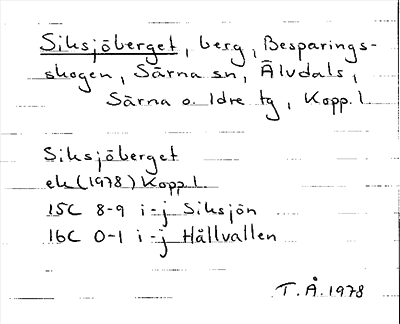 Siksjöberget, berg, Besparings-
skogen, Särna sn, Älvdals,
Särna o. Idre tg, Kopp.l.
Siksjöberget
ek (1978) Kopp.l.
15C 8-9 i-j Siksjön
16C 0-1 i-j Hållvallen
T.Å. 1978